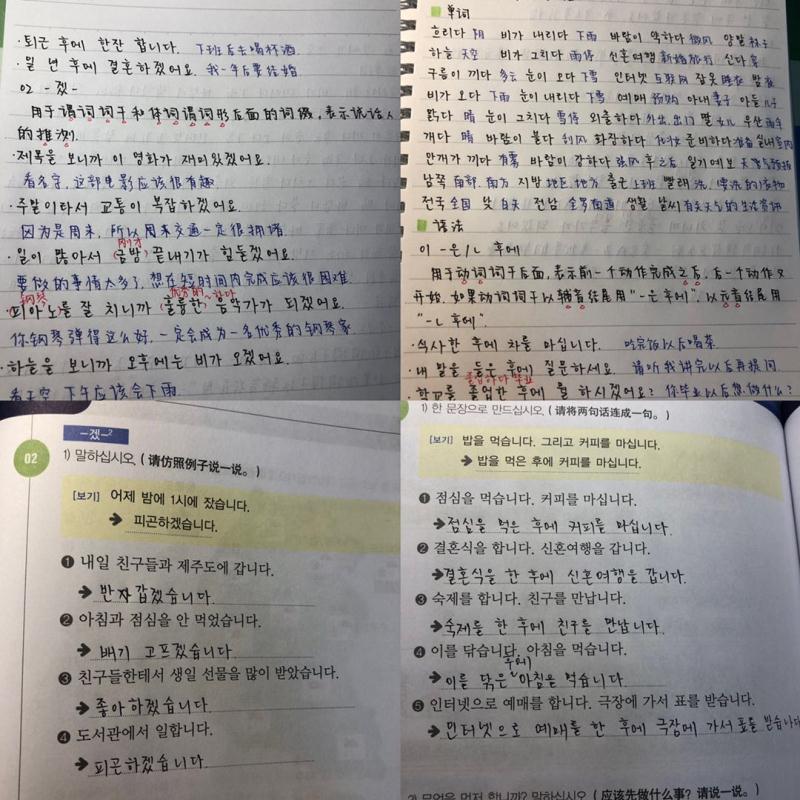 ·퇴근 후에 한잔 합니다. 下班后去喝杯酒
·일 년 후에 결혼하겠어요. 我一年后要结婚
02 -겠-
用于谓词词干和体词谓词形后面的词缀,表示说话人
的推测.
·제목을 보니까 이 영화가 재미있겠어요.
看名字,这部电影应该很有趣.
·주말이라서 교통이 복잡하겠어요.
因为是周末,所以周末交通一定很拥堵.
·일이 많아서 (금방) 끝내기가 힘들겠어요.
要做的事情太多了,想在短时间内完成应该很困难.
钢琴
·피아노를 잘 치니까 (훌륭한) 음악가가 되겠어요.
你钢琴弹得这么好,一定会成为一名优秀的钢琴家.
·하늘을 보니까 오후에는 비가 오겠어요.
看天空,下午应该会下雨
单词
흐리다 阴 비가 내리다 下雨 바람이 약하다 微风 양말 袜子
하늘 天空 비가 그치다 雨停 신혼여행 新婚旅行 신다 穿
구름이 끼다 多云 눈이 오다 下雪 인터넷 互联网 잠옷 睡衣
비가 오다 下雨 눈이 내리다 下雪 예매 预购 아내 妻子 아들 儿子
맑다 晴 눈이 그치다 雪停 외출하다 外出,出门 딸 女儿 우산 雨伞
개다 晴 바람이 불다 刮风 화장하다 化妆 준비하다 准备 실내 室内
안개가 끼다 有雾 바람이 강하다 强风 후 之后 일기예보 天气预报
남쪽 南部,南方 지방 地区,地方 출근 上班 빨래 洗,要洗的衣物
전국 全国 낮 白天 전남 全罗南道 생활 날씨
语法
01 -은/ㄴ 후에
用于动词词干后面,表示前一个动作完成之后,后一个动作又
开始.如果动词词干以辅音结尾用"-은 후에",以元音结尾用
"-ㄴ 후에".
·식사한 후에 차를 마십니다. 吃完饭以后喝茶
·내 말을 들은 후에 질문하세요. 请听我讲完以后再提问.
졸업하다 毕业
·학교를 졸업한 후에 뭘 하시겠어요? 你毕业以后想做什么?
-겠-²
02
1) 말하십시오. (请仿照例子说一说。)
[보기] 어제 밤에 1시에 잤습니다.
➔ 피곤하겠습니다.
❶ 내일 친구들과 제주도에 갑니다.
➔ 반자갑겠습니다.
❷ 아침과 점심을 안 먹었습니다.
➔ 배기 고프겠습니다.
❸ 친구들한테서 생일 선물을 많이 받았습니다.
➔ 좋아하겠습니다.
❹ 도서관에서 일합니다.
➔ 피곤하겠습니다.
1) 한 문장으로 만드십시오. (请将两句话连成一句。)
[보기] 밥을 먹습니다. 그리고 커피를 마십니다.
➔ 밥을 먹은 후에 커피를 마십니다.
❶ 점심을 먹습니다. 커피를 마십니다.
➔점심을 먹은 후에 커피를 마십니다.
❷ 결혼식을 합니다. 신혼여행을 갑니다.
➔결혼식을 한 후에 신혼여행을 갑니다.
❸ 숙제를 합니다. 친구를 만납니다.
➔숙제를 한 후에 친구를 만납니다.
❹ 이를 닦습니다. 아침을 먹습니다.
➔이를 닦은 후에 아침을 먹습니다.
❺ 인터넷으로 예매를 합니다. 극장에 가서 표를 받습니다.
➔인터넷으로 예매를 한 후에 극장에 가서 표를 받습니다
2) 무엇을 먼저 합니까? 말하십시오. (应该先做什么事? 请说一说。)